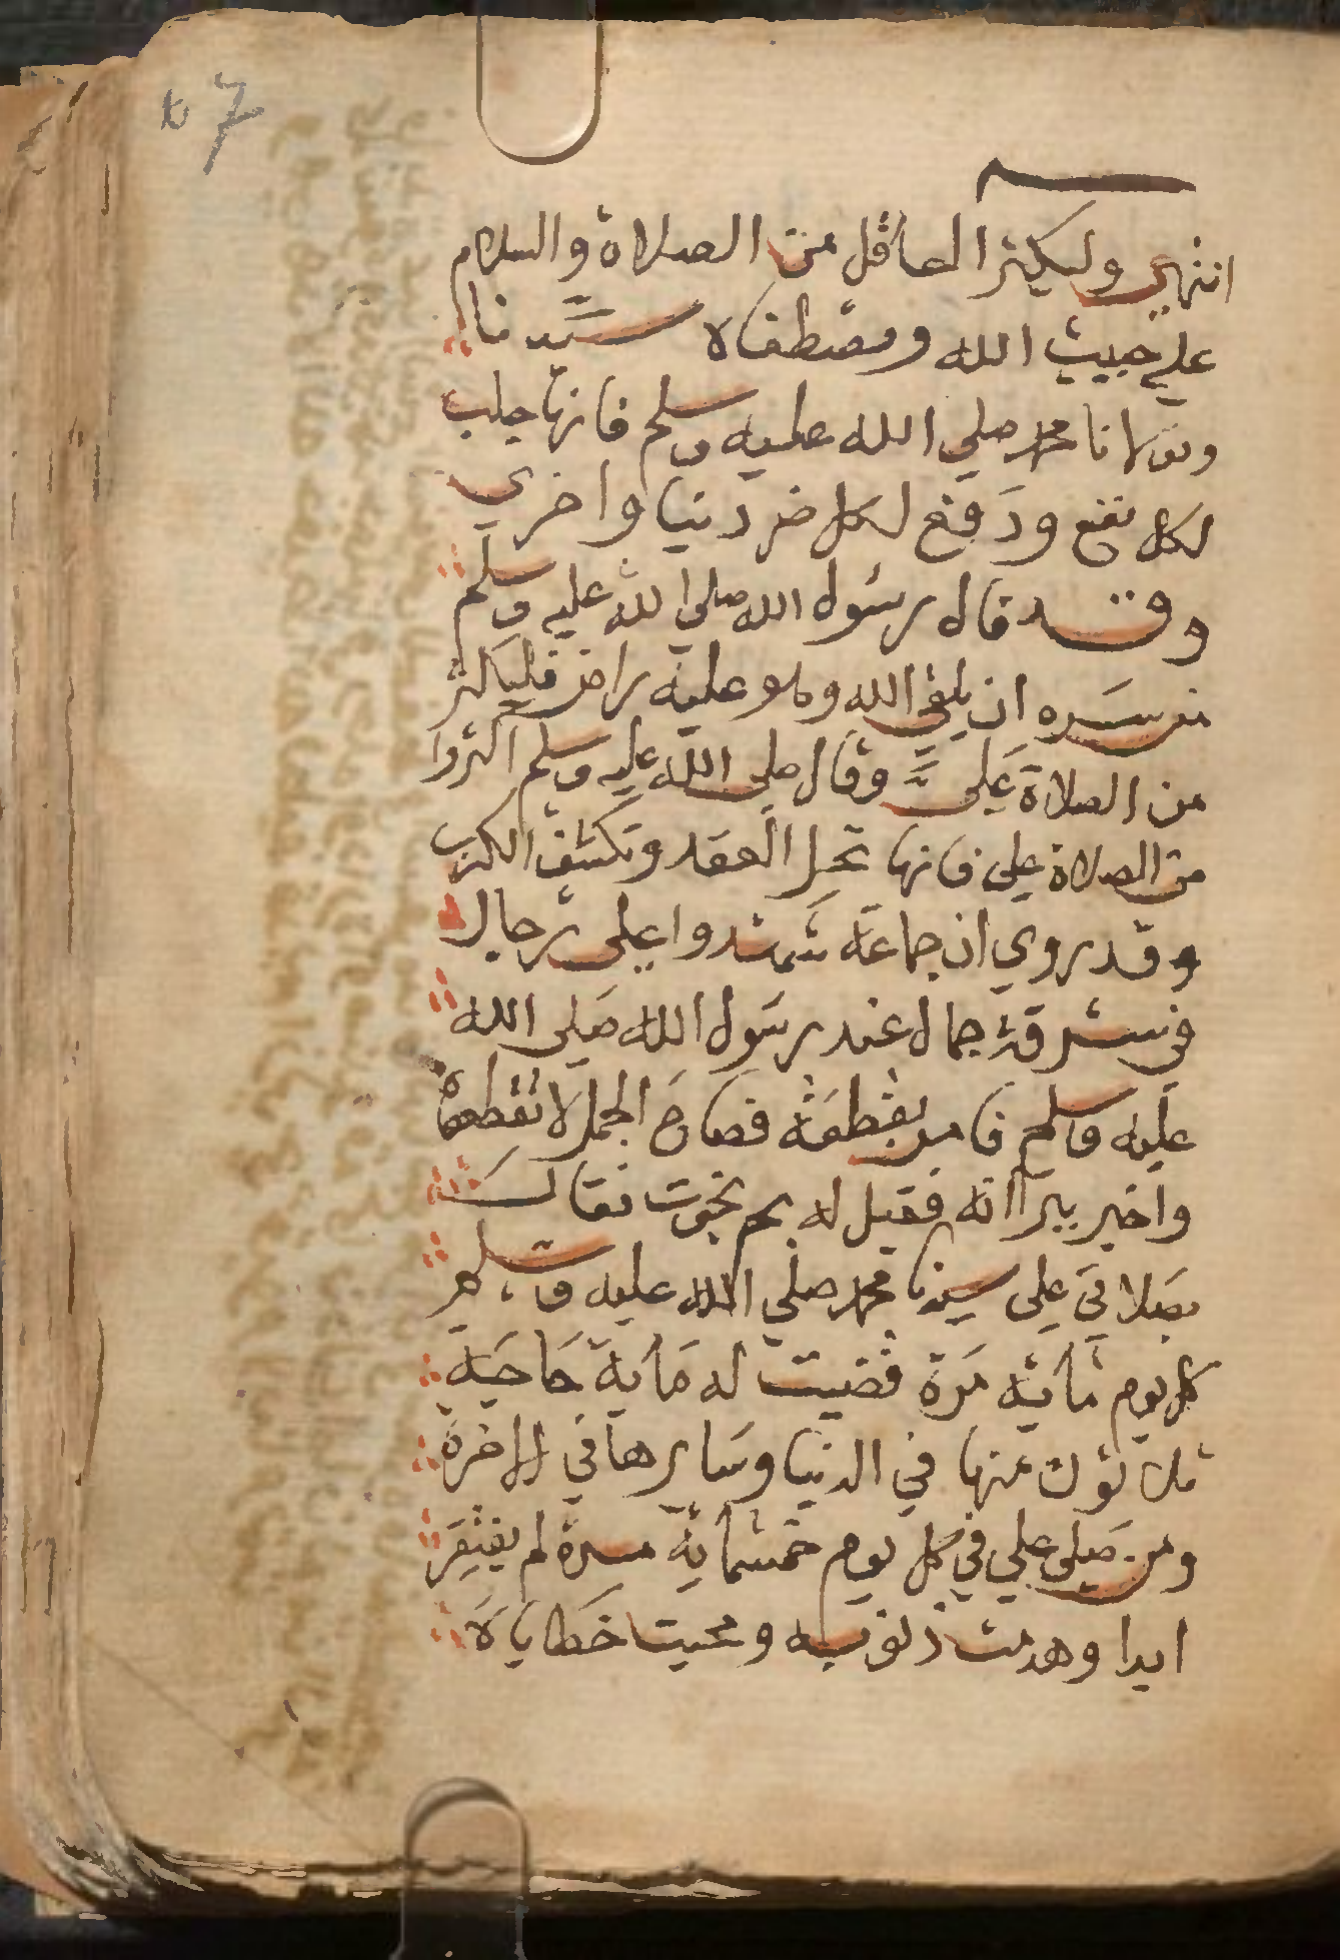 انتهى وليكثر العاقل من الصلاة والسلام
على حبيب الله ومصطفاه سيدنا
ومولانا محمد صلي الله عليه وسلم فانها جلب
لكل نفع ودفع لكل ضر دنيا واخري
وقد قال رسول الله صلى الله عليه وسلم
من سره ان يلقى الله وهو عليه راض فليكثر
من الصلاة على وقال صلى الله عليه وسلم اكثروا
من الصلاة على فانها تحل العقد وتكشف الكرب
وقد روي ان جماعة شهدوا على رجل
في سرقة جمال عند رسول الله صلى الله
عليه وسلم فامر بقطعه فصاح الجمل لا تقطعوه
واخبر ببراته فقيل له بم نجوت فقال
بصلاتي على سيدنا محمد صلي الله عليه وسلم
كل يوم مائة مرة قضيت له مائة حاجة
ثلاثون منها في الدنيا وسايرها في الاخرة
ومن صلى علي في كل يوم خمسماية مرة لم يفتقر
ابدا وهدمت ذنوبه ومحيت خطاياه